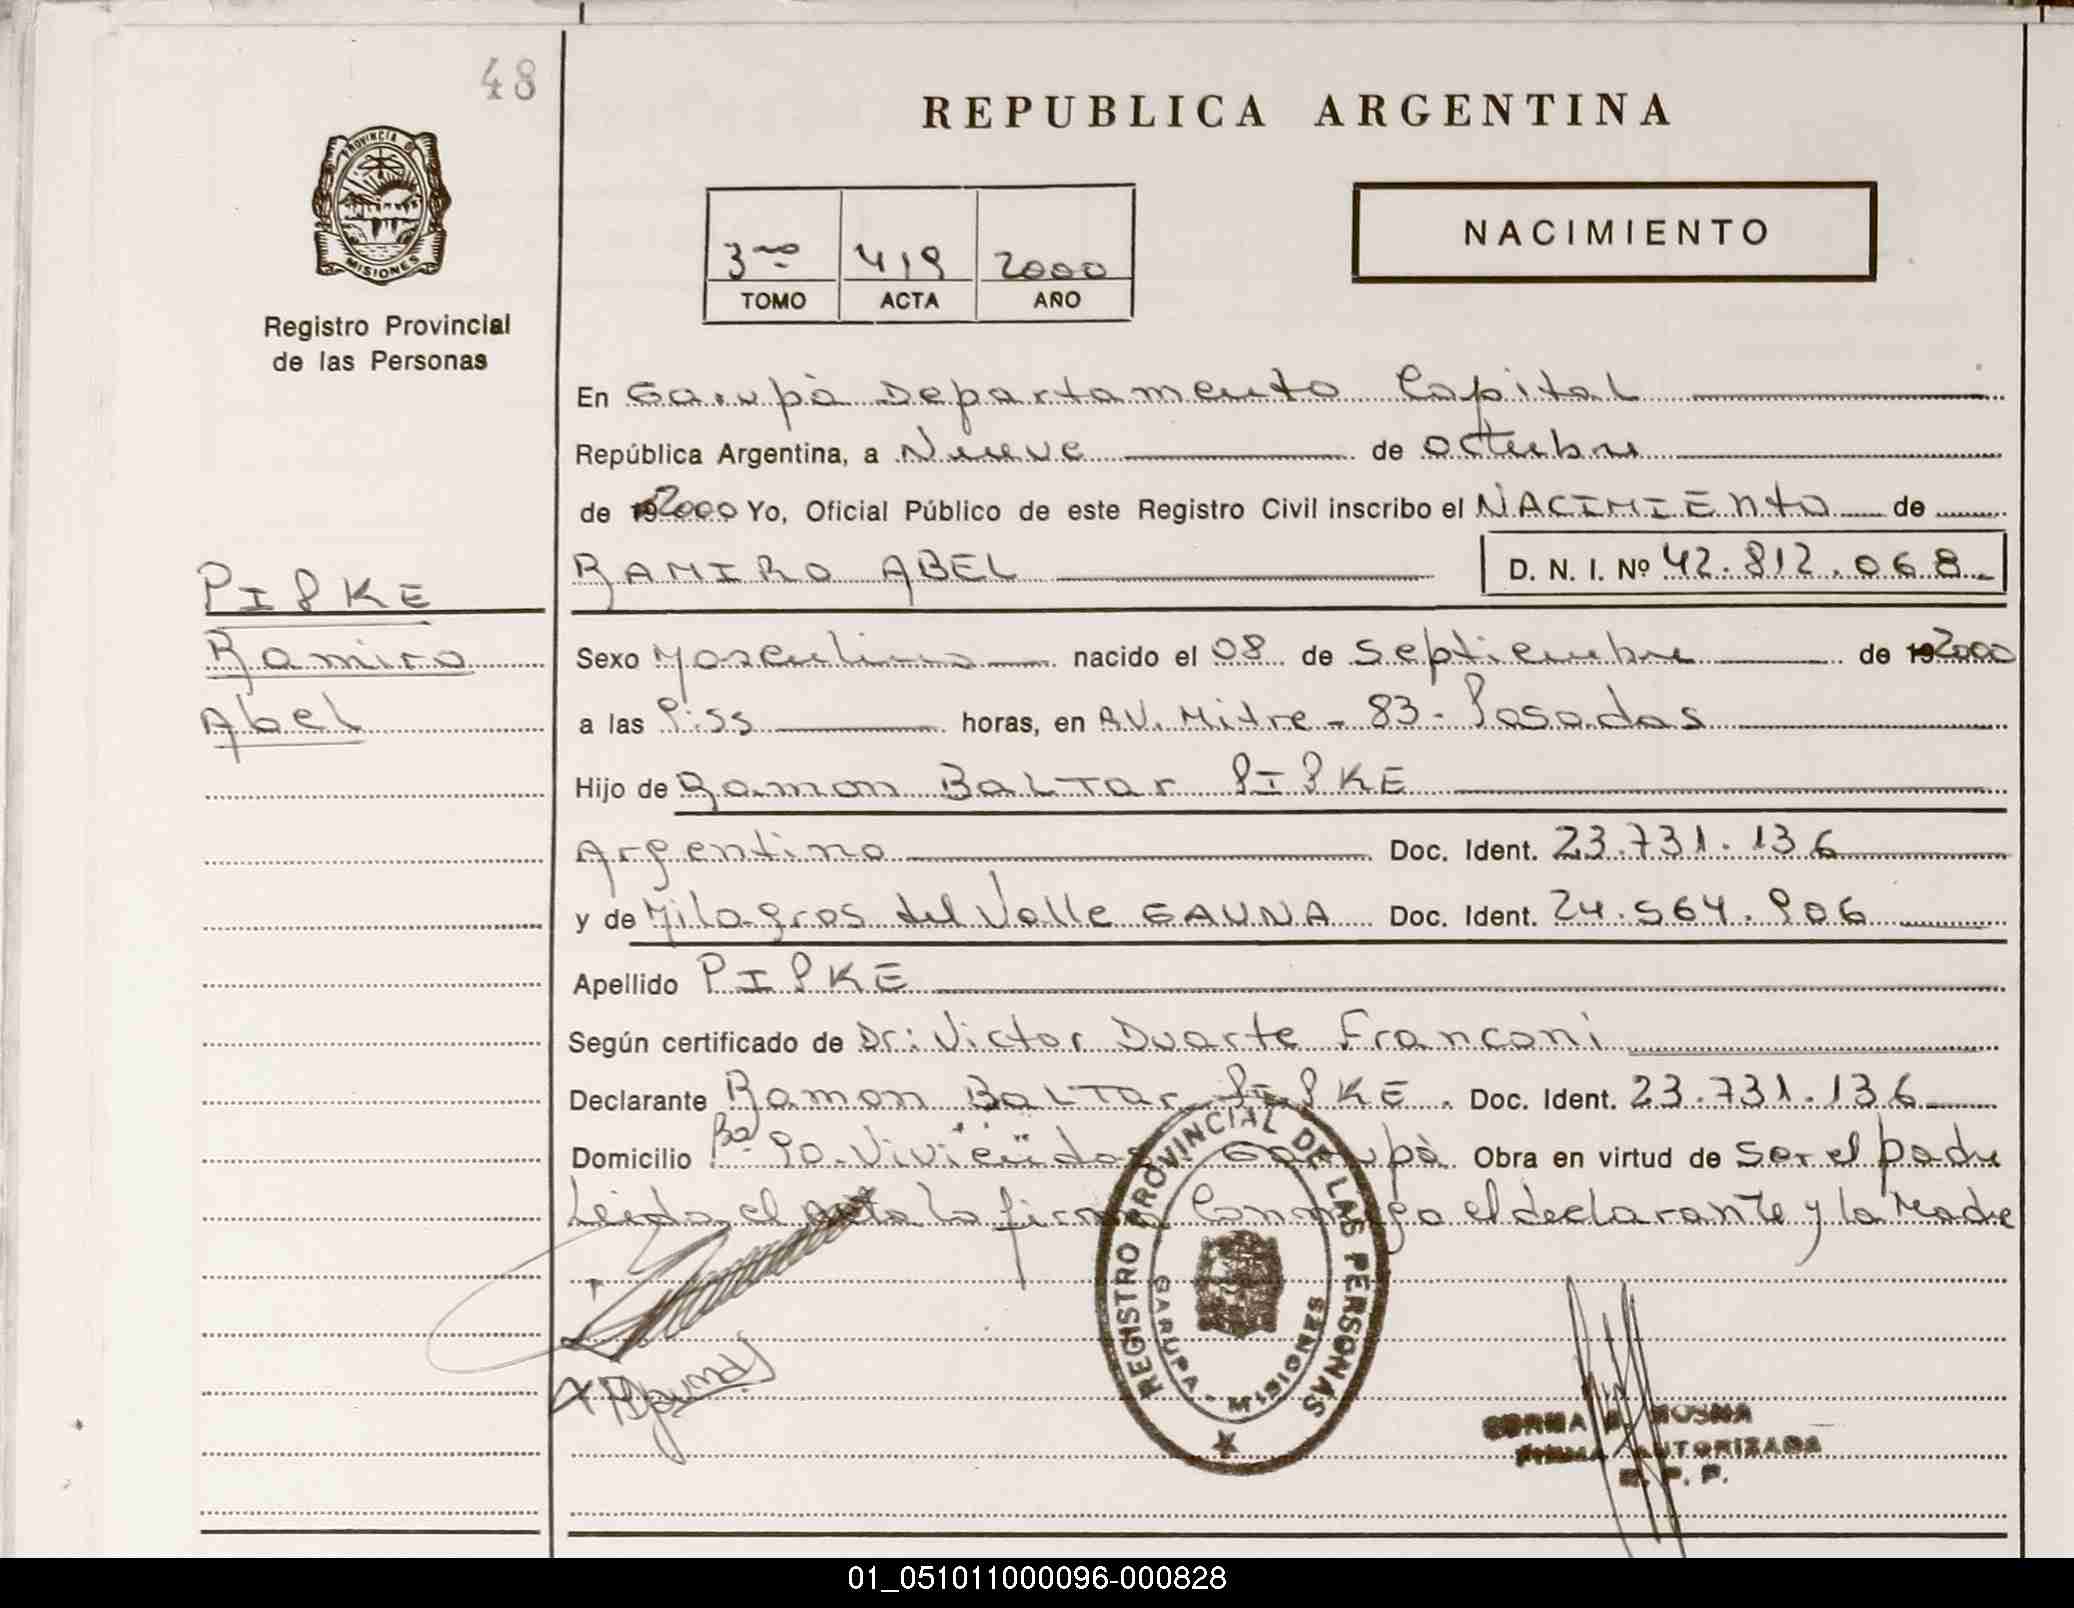 48
REPUBLICA ARGENTINA
PROVINCIA DE
MISIONES
Registro Provincial
de las Personas
3ro 419 2000
TOMO ACTA AÑO
NACIMIENTO
En Garupà Departamento Capital
República Argentina, a Nueve de octubre
de 192000 Yo, Oficial Público de este Registro Civil inscribo el NACIMIENto de
RAMIRO ABEL D. N. I. Nº 42.812.068
PIPKE
Ramiro
Abel
Sexo Masculino nacido el 08 de Septiembre de 192000
a las 9:55 horas, en AV. Mitre - 83 - Posadas
Hijo de Ramon BaLTar PIPKE
Argentino Doc. Ident. 23.731.136
y de Milagros del Valle GAUNA Doc. Ident. 24.564.906
Apellido PIPKE
Según certificado de Dr: Victor Duarte Franconi
Declarante Ramon BaLTar PIPKE. Doc. Ident. 23.731.136
Domicilio Bº 90 Viviendas Garupà Obra en virtud de Ser el padre
Leida el acta la firma Conmigo el declarante y la Madre
REGISTRO PROVINCIAL DE LAS PERSONAS
GARUPA - MISIONES
MOSNA
FIRMA AUTORIZADA
R. P. P.
01_051011000096-000828